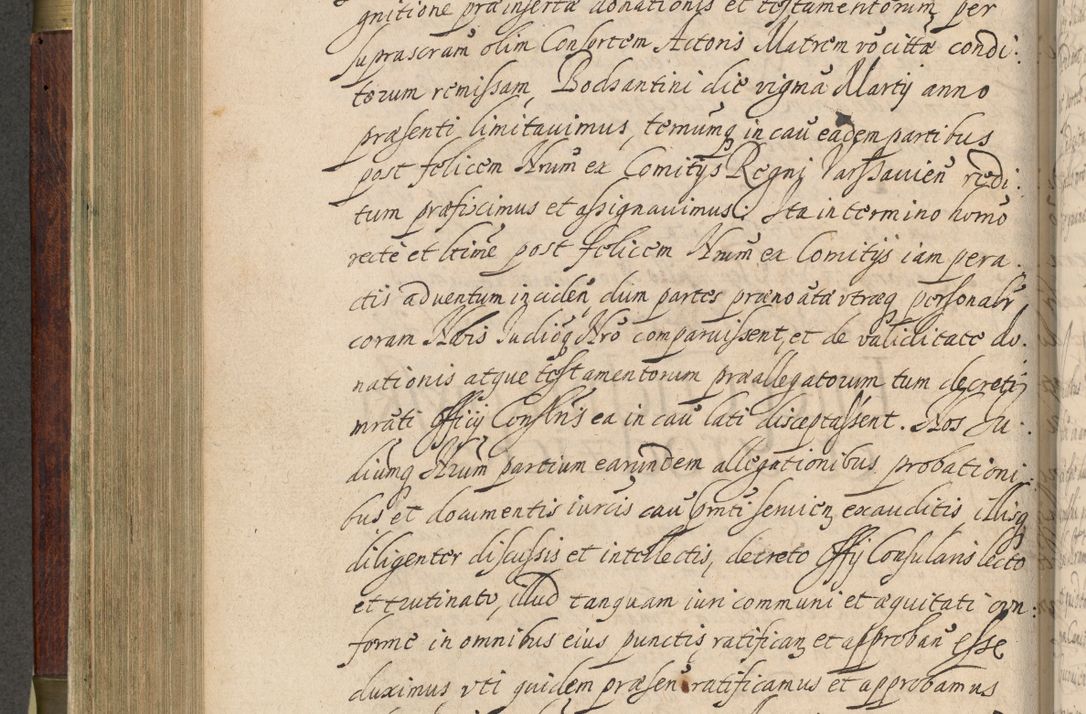 gnitione præinserta donationis et testamentorum per
supra scram olim Consortem Actoris Matrem vo citta condi:
torum remissam, Bodzantini die vigma Martij anno
præsenti limitauimus, temumq in cau eadem partibus
post felicem Nrum ex Comitijs Regni Varssauien redi:
tum præfiximus et assignauimus: Ita in termino homo
recte et ltime post felicem Nrum ex Comitijs iam pera.
ctis aduentum inciden dum partes prænoata vtraq personalr
coram Nobis Judioq Nro comparuissent, et de validitate do.
nationis atque testamentorum præallegatorum tum decreti
mrati offij Conslris ea in cau lati disceptassent. Nos Ju:
diumq Nrum partium earundem allegationibus, probationi:
bus et documentis iuris cau pmti seruien exauditis illisq
diligenter discussis et intellectis, decreto offij Consularis lecto
et trutinato, illud tanquam iuri communi et æquitati con:
forme in omnibus eius punctis ratifican et approban esse
duximus vti quidem præsen ratificamus et approbamus